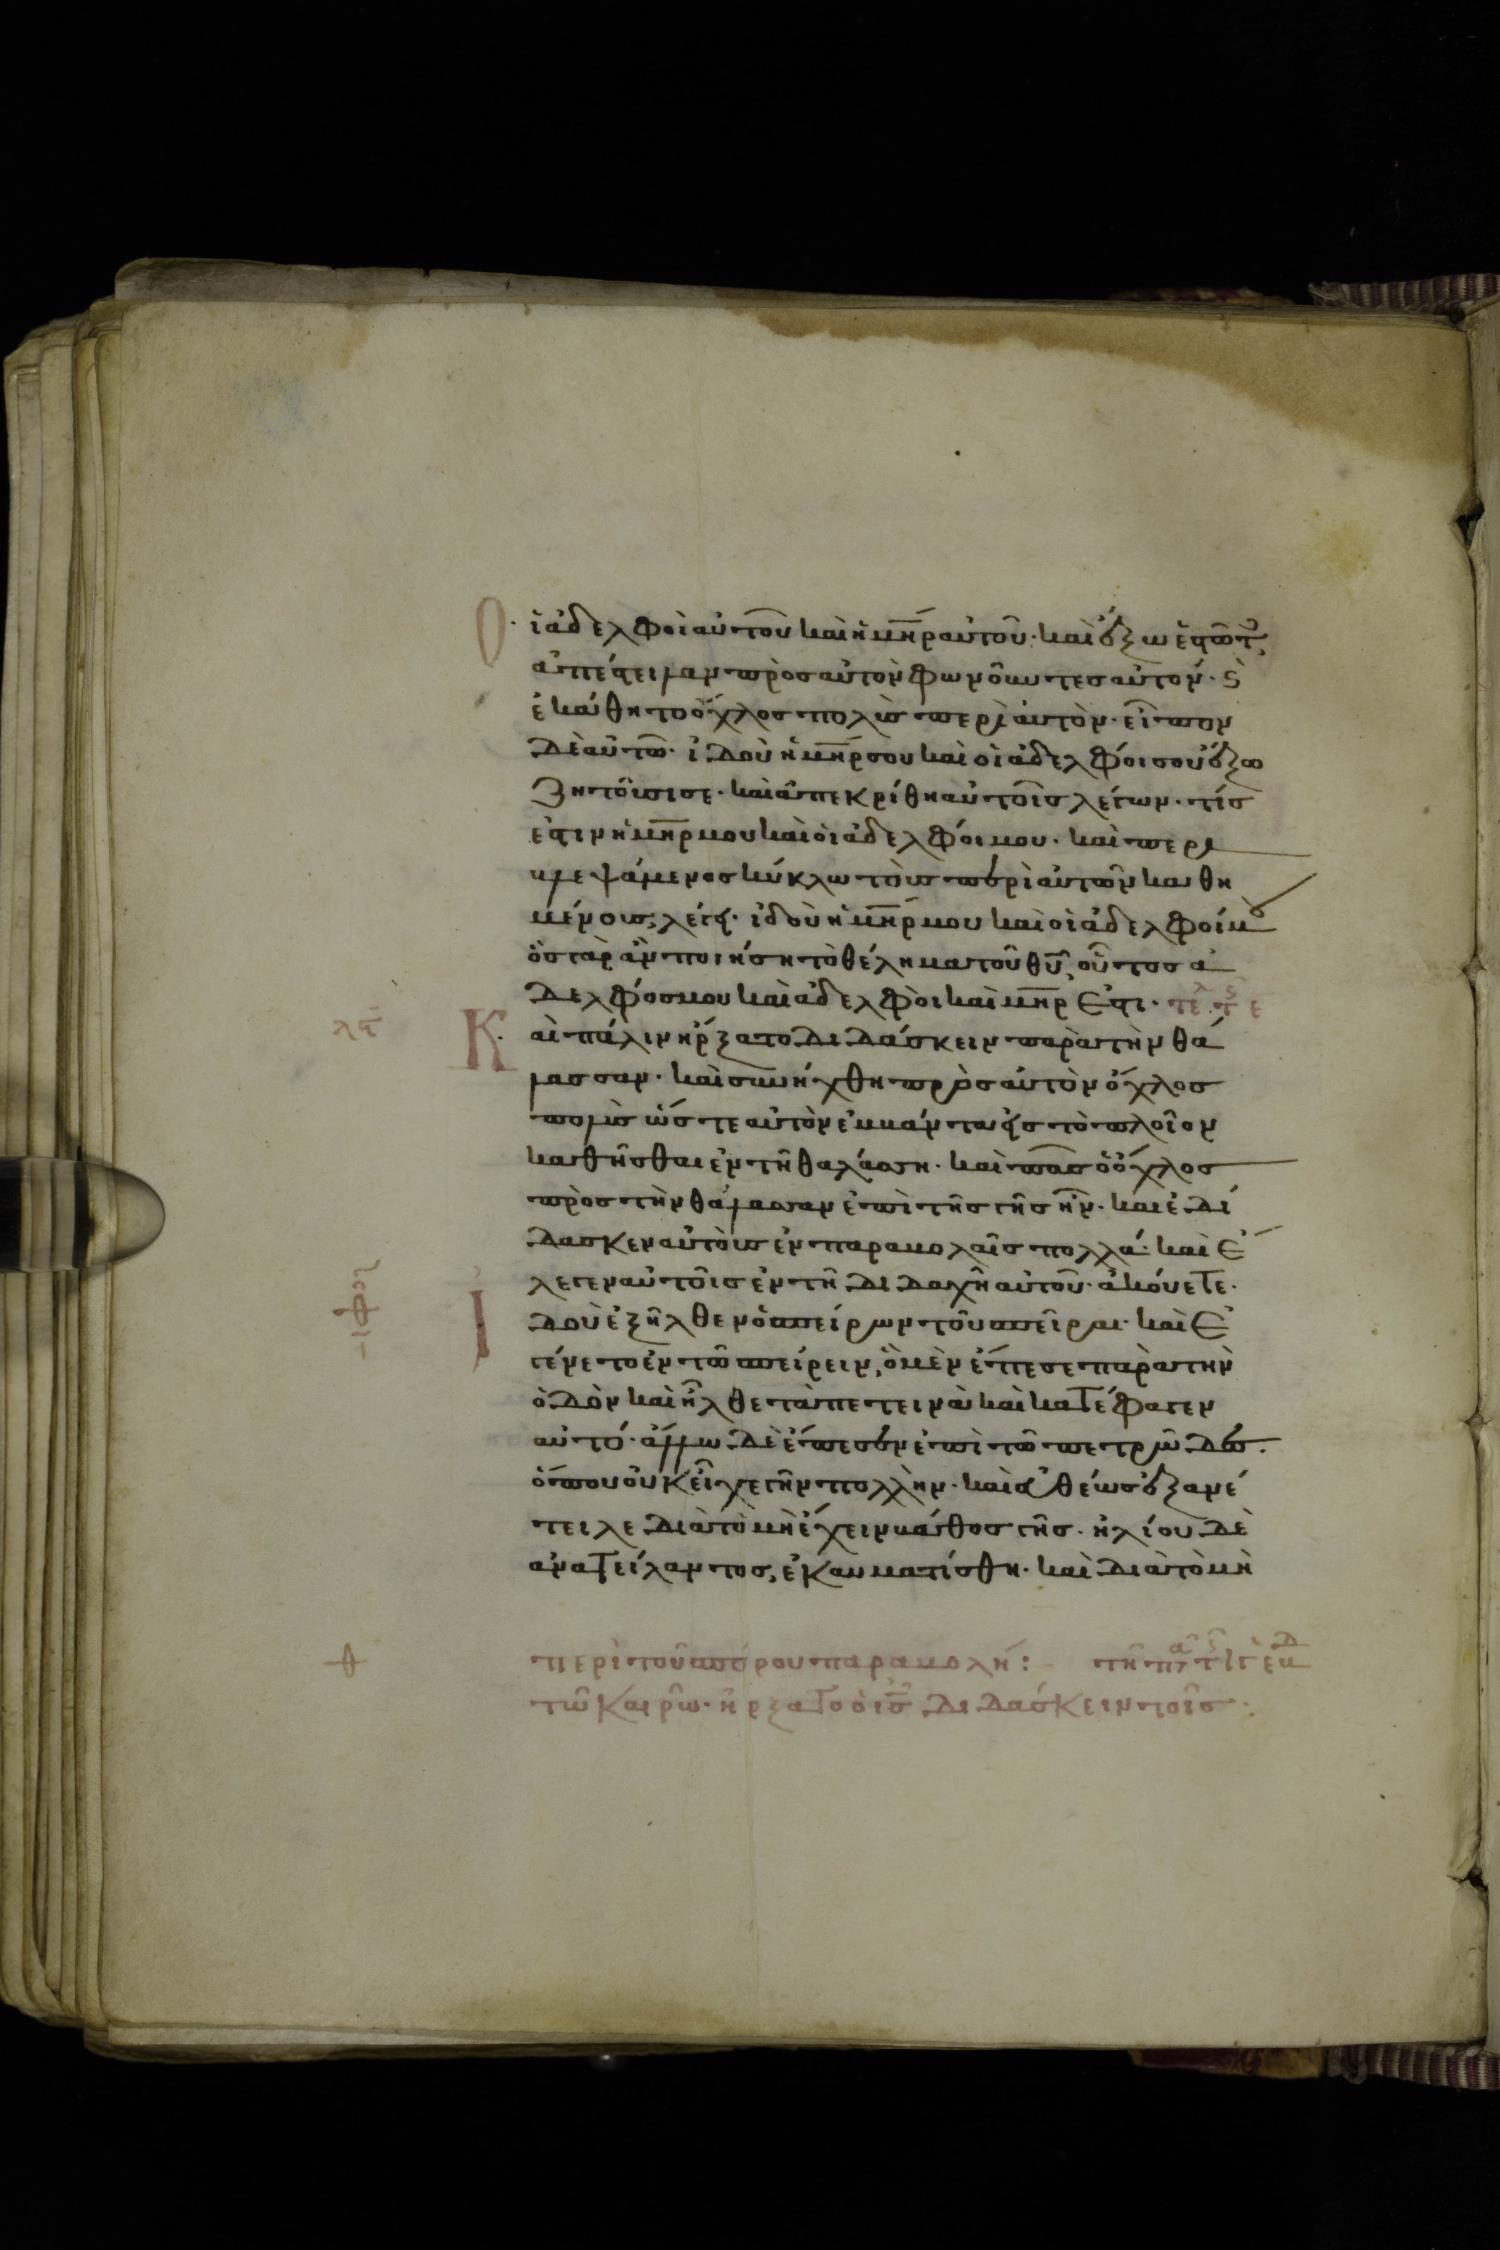 Οἱ ἀδελφοὶ αὐτοῦ καὶ ἡ μηρ αὐτοῦ· καὶ ἔξω ἑστῶτ
ἀπέστειλαν πρὸς αὐτὸν φωνοῦντες αὐτόν· ϛ
ἐκάθητο ὄχλος πολὺς περὶ αὐτὸν· εἶπον
δὲ αὐτῶ· ἰδοὺ ἡ μηρ σου καὶ οἱ ἀδελφοί σου ἔξω
ζητοῦσι σε· καὶ ἀπεκρίθη αὐτοῖς λέγων· τίς
ἐστιν ἡ μηρ μου καὶ οἱ ἀδελφοί μου· καὶ περι
βλεψάμενος κύκλω τοὺς περὶ αὐτῶν καθη
μένους, λέγει· ἰδοὺ ἡ μηρ μου καὶ οἱ ἀδελφοί μου
ὃς γὰρ ἂν ποιήση τὸ θέλημα τοῦ θυ, οὗτος ἀ
δελφός μου καὶ ἀδελφὸι καὶ μηρ ἐστι·
λϛ Καὶ πάλιν ἤρξατο διδάσκειν παρὰ τὴν θά
λασσαν· καὶ συνήχθη πρὸς αὐτὸν ὄχλος
πολὺς ὥστε αὐτὸν ἐμβάντα εἰς τὸ πλοῖον
καθῆσθαι ἐν τῆ θαλάσση· καὶ πᾶς ὁ ὄχλος
πρὸς τὴν θάλασσαν ἐπὶ τῆς γῆς ἦν· καὶ ἐδί
δασκεν αὐτοὺς ἐν παραβολαῖς πολλά· καὶ ἔ
λεγεν αὐτοῖς ἐν τῆ διδαχῆ αὐτοῦ· ἀκούετε·
Ἰδοὺ ἐξῆλθεν ὁ σπείρων τοῦ σπεῖραι· καὶ ἐ
γένετο ἐν τῶ σπείρειν, ὃ μὲν ἔπεσε παρὰ τὴν
ὁδὸν καὶ ἦλθε τὰ πετεινὰ καὶ κατέφαγεν
αὐτό· ἄλλω δὲ ἔπεσεν ἐπὶ τῶ πετρῶδες·
ὅπου οὐκ εἶχε γῆν πολλὴν· καὶ εὐθέως ἐξανέ
τειλε διὰ τὸ μὴ ἔχειν βάθος γῆς· ἡλίου δὲ
ἀνατείλαντος, ἐκαυματίσθη· καὶ διὰ τὸ μὴ
θ περὶ τοῦ σπόρου παραβολή:
τῶ καιρῶ· ἤρξατο ὁ ις διδάσκειν τοῖς·